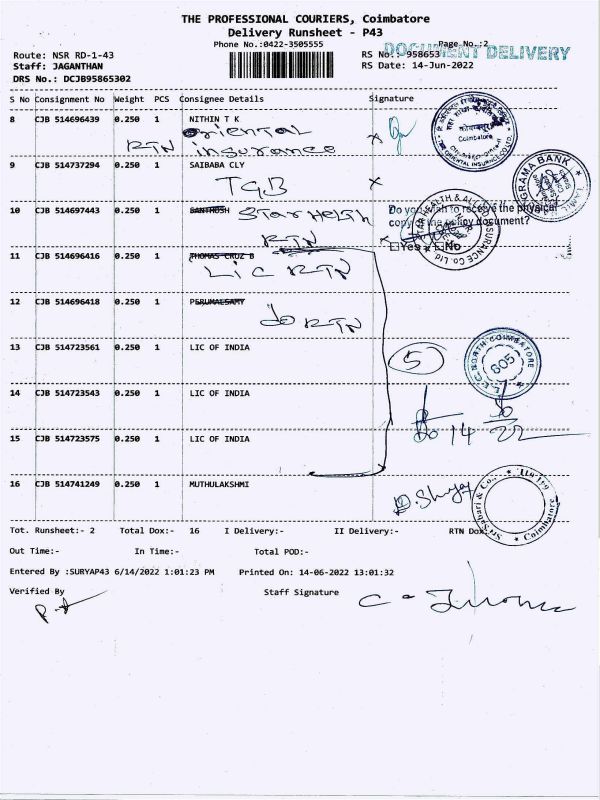 THE PROFESSIONAL COURIERS, Coimbatore
Delivery Runsheet - P43
Phone No.:0422-3505555
Page No.:2
DOCUMENT DELIVERY
Route: NSR RD-1-43
RS No.: 958653
Staff: JAGANTHAN
RS Date: 14-Jun-2022
DRS No.: DCJB95865302
S No Consignment No Weight PCS Consignee Details Signature
8 CJB 514696439 0.250 1 NITHIN T K
oriental
RTN insurance
Coimbatore
9 CJB 514737294 0.250 1 SAIBABA CLY
TGB
GRAMA BANK
10 CJB 514697443 0.250 1 SANTHOSH Star Health
RTN
Do you wish to receive the physical
copy of the policy document?
Yes No
11 CJB 514696416 0.250 1 THOMAS CRUZ B
LIC RTN
12 CJB 514696418 0.250 1 PERUMALSAMY
do RTN
13 CJB 514723561 0.250 1 LIC OF INDIA
5
NORTH COIMBATORE
G05
14 CJB 514723543 0.250 1 LIC OF INDIA
15 CJB 514723575 0.250 1 LIC OF INDIA
14 22
16 CJB 514741249 0.250 1 MUTHULAKSHMI
Coimbatore
Tot. Runsheet:- 2 Total Dox:- 16 I Delivery:- II Delivery:- RTN Dox
Out Time:- In Time:- Total POD:-
Entered By :SURYAP43 6/14/2022 1:01:23 PM Printed On: 14-06-2022 13:01:32
Verified By Staff Signature